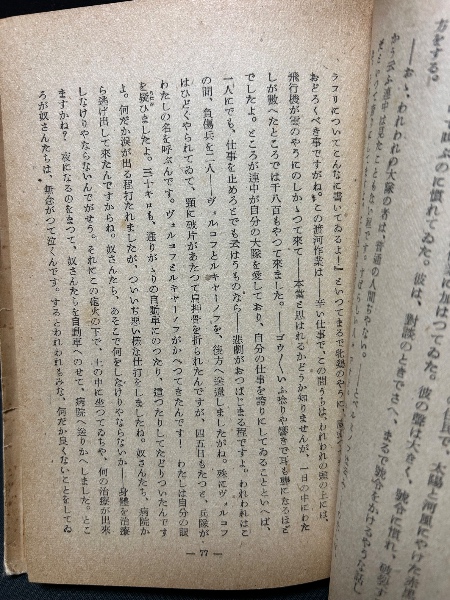 団で、太陽と河風にやけた赤黒
に加はつてゐた。彼の声ときたら、號令に慣れ、
叫ぶのに慣れてゐた。彼は、對談のときでさへ、まるで號令をかけるやうな話し
方をする。
――おゝ、われわれの大隊の者は、普通の人間ぢやない。
かうぶ連中は見たこともない
ラフリについてこんなに書いてゐるよ！』といつてまるで牝鶏のやうに、
おどろくべき事ですがね。この渡河作業は――辛い仕事で、この間うちは、われわれの頭の上には、
飛行機が雲のやうにのしかゝつて來て――本當と思はれるかどうか知りませんが、一日の中にわた
しが數へたところでは千八百もやつて來ました。――ゴウ／＼いふ唸りや響きで耳も聾になるほど
でしたよ。ところが連中が自分の大隊を愛しており、自分の仕事を誇りにしてゐることといへば、
一人にでも、仕事を止めろとでも云はうものなら――悲劇がおつぱじまる程ですよ。われわれはこ
の間、負傷兵を二人――ヴォルコフとルキヤーノフを、後方へ送還しましたがね。殊にヴォルコフ
はひどくやられてゐて、頸に破片があたつて肩胛骨を折られたんですが、四五日もたつと、兵隊が
わたしの名を呼ぶんです。ヴォルコフとルキヤーノフがかへつてきたんです！　わたしは自分の眼
を疑ひましたよ。三十キロも、通りがゝりの自動車にのつたり、這つたりしてたどりついたんです
よ。何だか涙が出る程打たれましたが、ついいち悪い様な仕打をしましたね。奴さんたち、病院か
ら逃げ出して來たんですからね。奴さんたち、あそこで何をしなけりやならないか――身體を治療
しなけりやならないんでがせう。それにこの砲火の下で、土の中に坐つてゐちや、何の治療が出來
ますかね？　夜になるのをまつて、奴さんたちを自動車へのせて、病院へ送りかへしました。とこ
ろが奴さんたちは、無念がつて泣くんです。するとわれわれもみな、何だか良くないことをしてゐ
― 77 ―